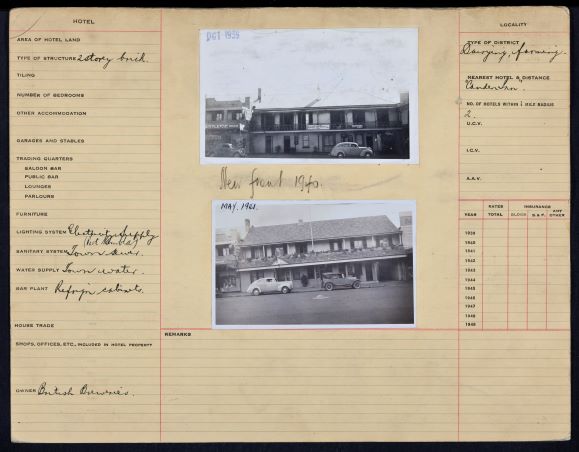 HOTEL
AREA OF HOTEL LAND
TYPE OF STRUCTURE 2 story brick.
TILING
NUMBER OF BEDROOMS
OTHER ACCOMMODATION
GARAGES AND STABLES
TRADING QUARTERS
SALOON BAR
PUBLIC BAR
LOUNGES
PARLOURS
FURNITURE
LIGHTING SYSTEM Electricity Supply
SANITARY SYSTEM Town Sewer.
WATER SUPPLY Town water.
BAR PLANT Refrig. cabinets.
HOUSE TRADE
SHOPS, OFFICES, ETC., INCLUDED IN HOTEL PROPERTY
OWNER British Breweries.
OCT 1939
New front 1940.
MAY. 1961.
REMARKS
LOCALITY
TYPE OF DISTRICT
Dairying, farming.
NEAREST HOTEL & DISTANCE
"Camden Inn"
NO. OF HOTELS WITHIN ½ MILE RADIUS
2.
U.C.V.
I.C.V.
A.A.V.
YEAR RATES TOTAL INSURANCE BLDGS. S & F. ANY OTHER
1939
1940
1941
1942
1943
1944
1945
1946
1947
1948
1949